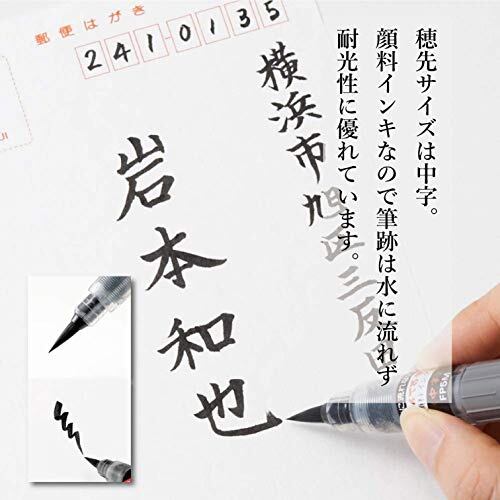 郵便はがき
2410135
穂先サイズは中字。
顔料インキなので筆跡は水に流れず
耐光性に優れています。
横浜市旭区三反田
岩本和也
FP5M